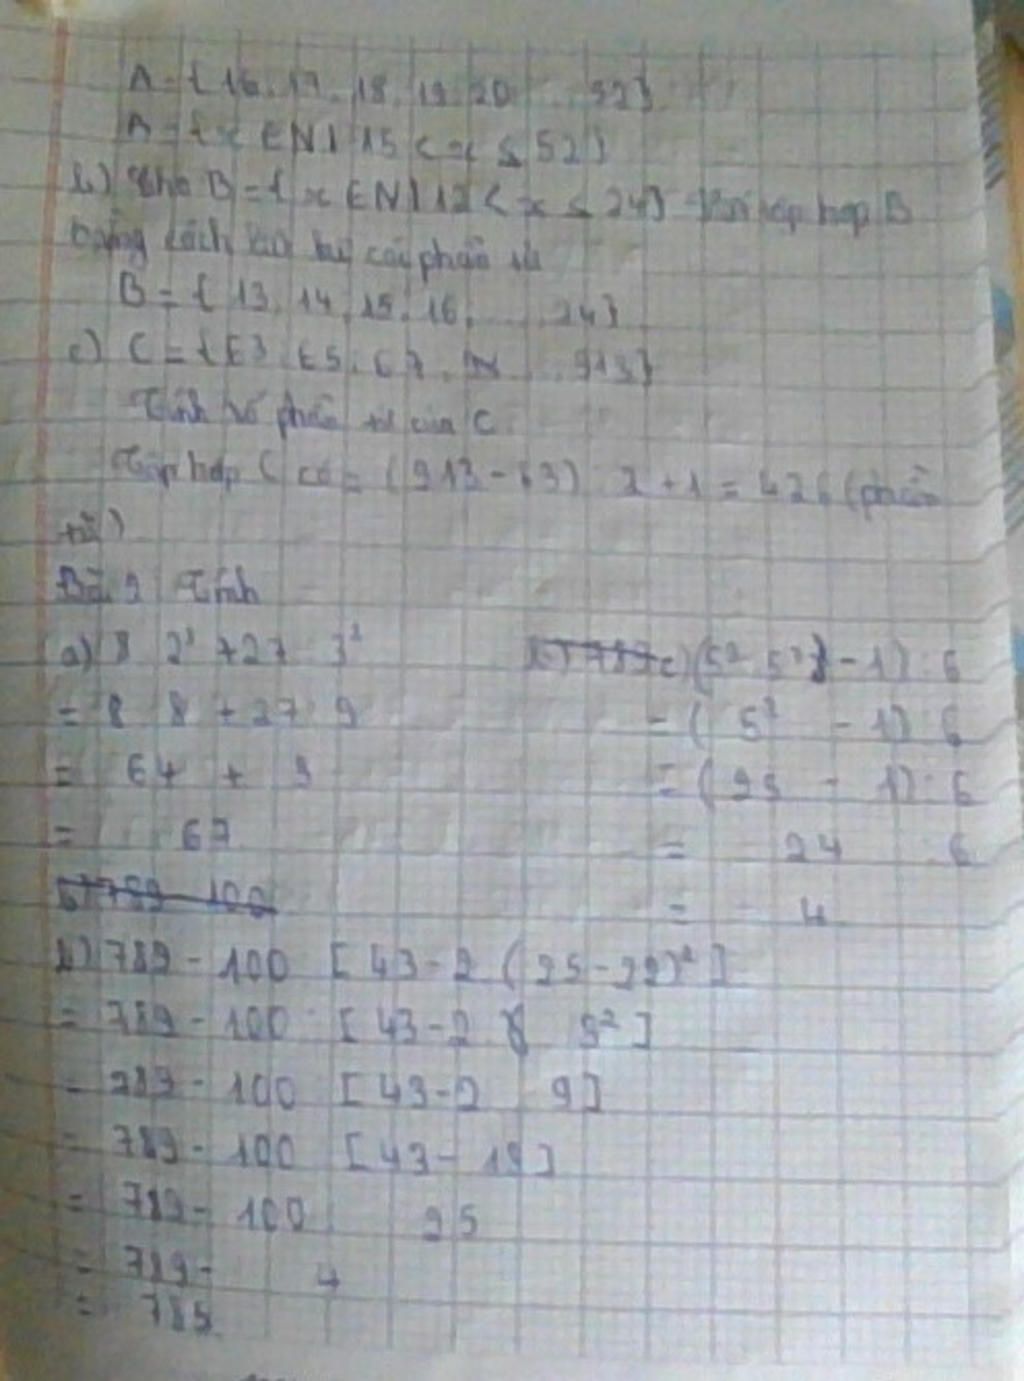 A = { 16, 17, 18, 19, 20 ... 52}
A = {x ∈ N | 15 < x ≤ 52}
b) Cho B = { x ∈ N | 12 < x ≤ 24} tập hợp B
bằng cách phần tử
B = { 13, 14, 15, 16, ... 24}
c) C = { 63, 65, 67, ... 913}
Tính số phần tử của C
Tập hợp C có = (913 - 63) 2 + 1 = 426 (phần
tử)
Bài 2 Tính
a) 8 2³ + 27 3²
= 8 8 + 27 9
= 64 + 3
= 67
b) 789 - 100 [ 43 - 2 ( 25 - 22)² ]
= 789 - 100 : [ 43 - 2 3² ]
= 789 - 100 [ 43 - 2 9 ]
= 789 - 100 [ 43 - 18 ]
= 789 - 100 25
= 789 - 4
= 785
c) (5² - 1) : 6
= ( 5² - 1) 6
= ( 25 - 1) : 6
= 24 : 6
= 4